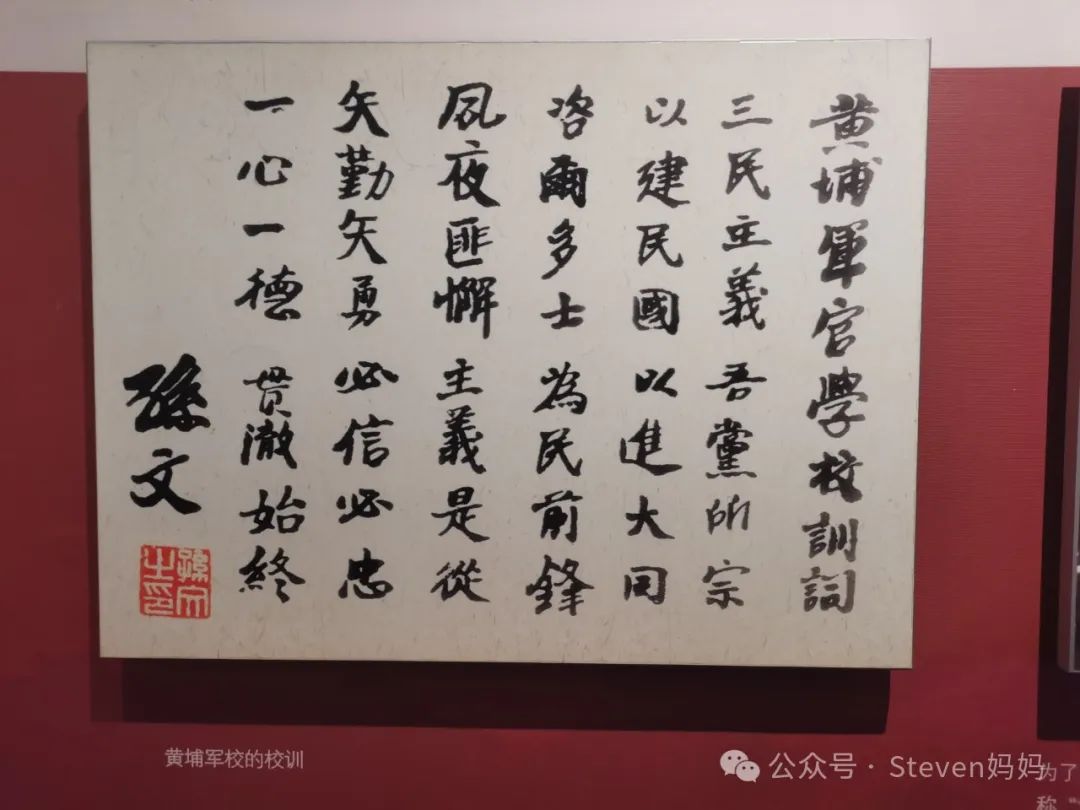 黄埔軍官學校訓詞
三民主義 吾黨所宗
以建民國 以進大同
咨爾多士 為民前鋒
夙夜匪懈 主義是從
矢勤矢勇 必信必忠
一心一德 貫澈始終
孫文
孫文之印
黄埔军校的校训
公众号 · Steven妈妈
为了
称"